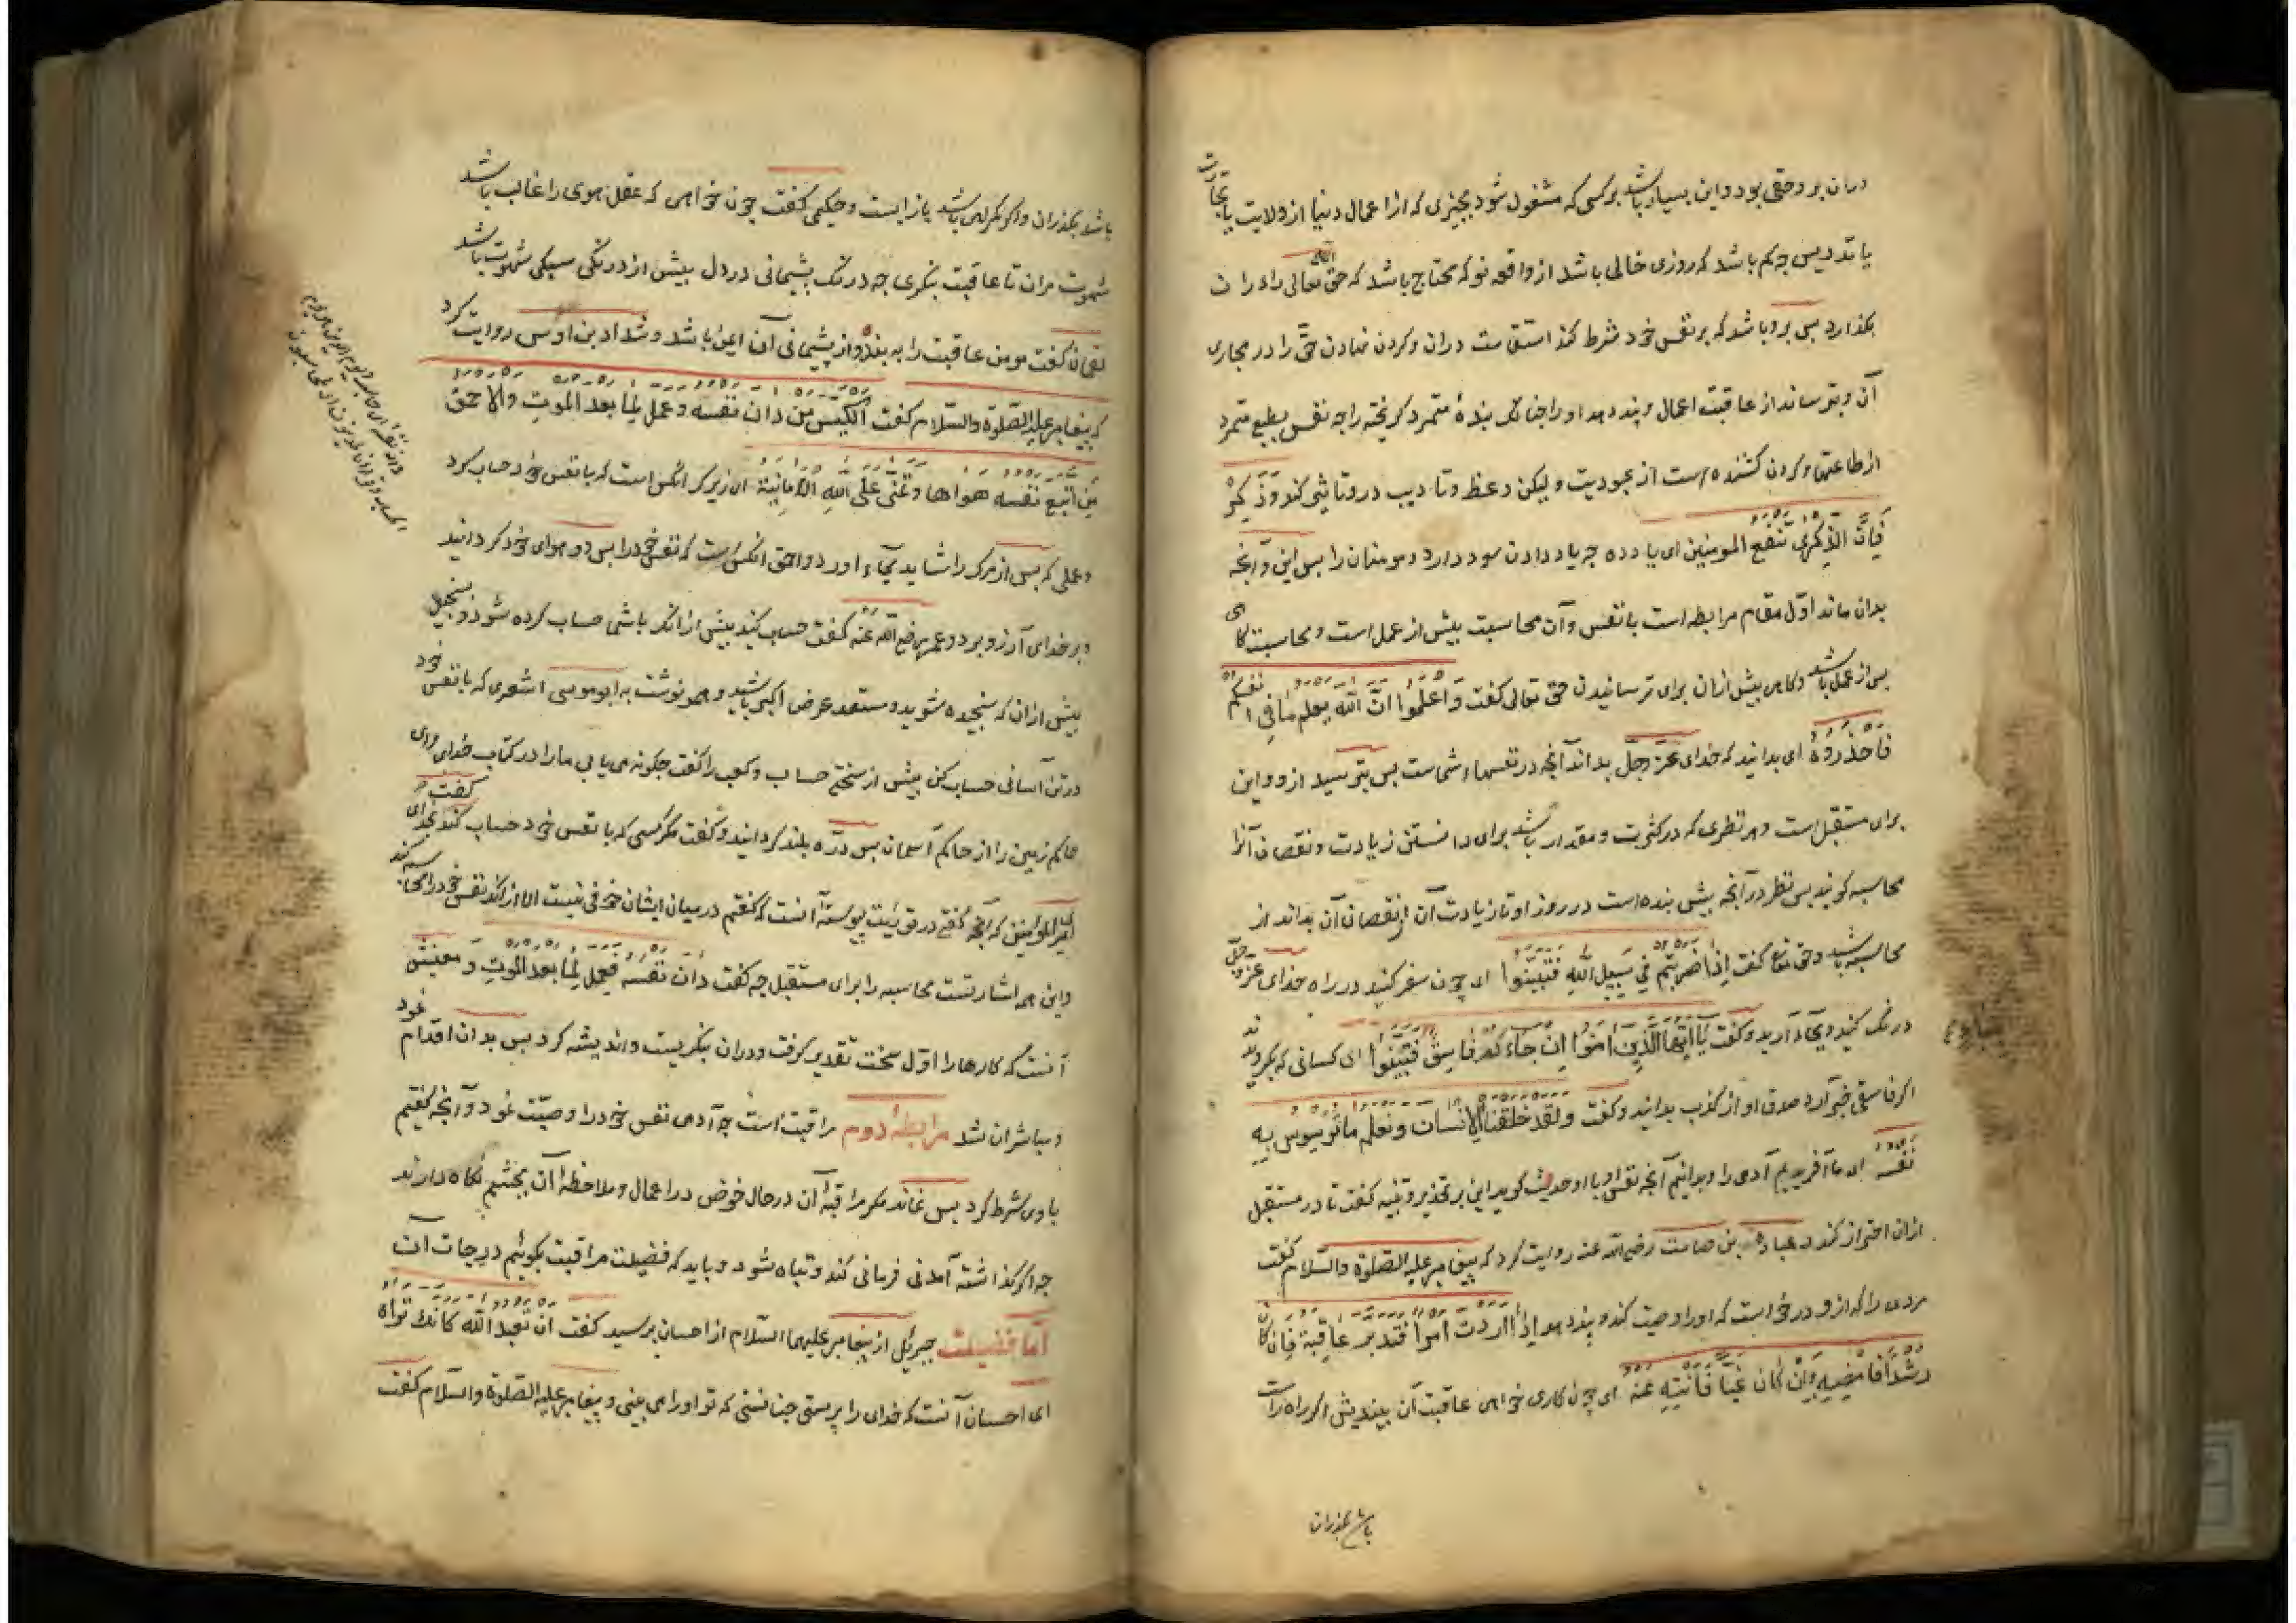 دران بروحقی بود و این بسیار باشد بر کسی که مشغول شود بچیزی که از اعمال دنیا از ولایت یا تجارت
یا تدریس چه کم باشد که روزی خالی باشد از واقعه نو که محتاج باشد که حق تعالی را دران
بگذارد پس برو باشد که بر نفس خود شرط کند استقامت دران و کردن نهادن حق را در مجاری
آن و بترساند از عاقبت اعمال و پند دهد او را چنانک بندۀ متمرد گریخته را چه نفس بطبع متمرد
از طاعتها و کردن کشنده است از عبودیت و لیکن وعظ و تادیب درو تاثیر کند وَذَكِّرْ
فَاِنَّ الذِّكْرٰی تَنْفَعُ المومنین ای یاد ده چه یاد دادن سود دارد مومنان را پس این و آنچه
بدان ماند اوّل مقام مرابطه است با نفس و آن محاسبت پیش از عمل است و محاسبت گاهی
پس از عمل باشد و گاهی پیش ازان برای ترسانیدن حق تعالی گفت وَاعْلَمُوا اَنَّ اللّٰهَ یعلم مَا فِی انفسکم
فَاحْذَرُوهُ ای بدانید که خدای عزّ وجلّ بداند آنچه در نفسهاء شماست پس بترسید ازو و این
برای مستقبل است و هر نظری که در کثرت و مقدار باشد برای دانستن زیادت و نقصان آنرا
محاسبه گویند پس نظر در آنچه پیش بنده است در روز او تا زیادت آن از نقصان آن بداند از
محاسبه باشد و حق تعالی گفت اِذَا ضَرَبْتُمْ فِی سَبِیلِ اللّٰهِ فَتَبَیَّنُوا ای چون سفر کنید در راه خدای عزّ وجلّ
درنگ کنید و بجاء آرید و گفت یَا اَیُّهَا الَّذِینَ آمَنُوا اِن جَاءَكُم فَاسِقٌ فَتَبَیَّنُوا ای کسانی که بگرویدند
اگر فاسقی خبر آرد صدق او از کذب بدانید و گفت ولقد خلقنا الانسان ونعلم ما توسوس به
نفسه ای ما آفریدیم آدمی را و بدانیم آنچه نفس او با او حدیث گوید این بر تحذیر و تنبیه گفت تا در مستقبل
ازان احتراز کند و عبادة بن صامت رضی الله عنه روایت کرد که پیغامبر علیه الصلوة والسّلام گفت
مردی را که ازو درخواست که او را وصیت کند و پند دهد اِذَا اردت امراً فتدبر عاقبة فان کان
رشداً فامضیه وان كان غیّا فانتیه عنه ای چون کاری خواهی عاقبت آن بیندیش اگر راه راست
باشد بگذران
باشد بگذران و اگر گمراهی باشد باز ایست و حکیمی گفت چون خواهی که عقل هوی را غالب باشد
شهوت مران تا عاقبت بنگری چه درنگ پشیمانی در دل بیش از درنگ سبکی شهوت باشد
لقمان گفت مومن عاقبت را به بیند و از پشیمانی آن ایمن باشد و شداد بن اوس روایت کرد
که پیغامبر علیه الصّلوة والسّلام گفت الکیّس من دان نفسه وعمل لِما بعد الموت والاحمق
من اتبع نفسه هواها وتمنّی علی الله الامانیة ای زیرک آنکس است که با نفس خود حساب کرد
و عملی که پس از مرگ را شاید بجاء اورد و احمق آنکس است که نفس خود را پس رو هوای خود گردانید
و بر خدای آرزو برد و عمر رضی الله عنه گفت حساب کنید پیش از انک با شما حساب کرده شود و بسنجید
پیش ازان که سنجیده شوید و مستعد عرض اکبر باشید و همو نوشت به ابوموسی اشعری که با نفس خود
در تن آسانی حساب کن پیش از سختی حساب و کعب را گفت چگونه می یابی ما را در کتاب خدای گفت وای
حاکم زمین را از حاکم آسمان پس درّه بلند گردانید و گفت مگر کسی که با نفس خود حساب کند گفت خدای
امیر المومنین که آنچه گفتی در توریت پیوسته آنست که گفتم در میان ایشان حرفی نیست الا از انک نفس خود را محاسبه کند
و این همه اشارتست محاسبه را برای مستقبل چه گفت دان نفسه فیعمل لما بعد الموت و معنیش
آنست که کارها را اوّل سخت تقدیر گرفت و دران بنگریست و اندیشه کرد پس بدان اقدام نمود
و مباشران شد مرابطۀ دوم مراقبت است چه آدمی نفس خود را وصیّت نمود و آنچه گفتیم
با وی شرط کرد پس نماند مگر مراقبۀ آن در حال خوض در اعمال و ملاحظۀ آن بچشم نگاه دارند
چه اگر گذاشته آمد نی فرمانی کند و تباه شود و باید که فضیلت مراقبت بگوئیم درجات آن
امّا فضیلت جبرئیل از پیغامبر علیهما السّلام از احسان پرسید گفت ان تعبد الله کانك تراه
ای احسان آنست که خدای را پرستی چنانستی که تو او را می بینی و پیغامبر علیه الصّلوة والسّلام گفت